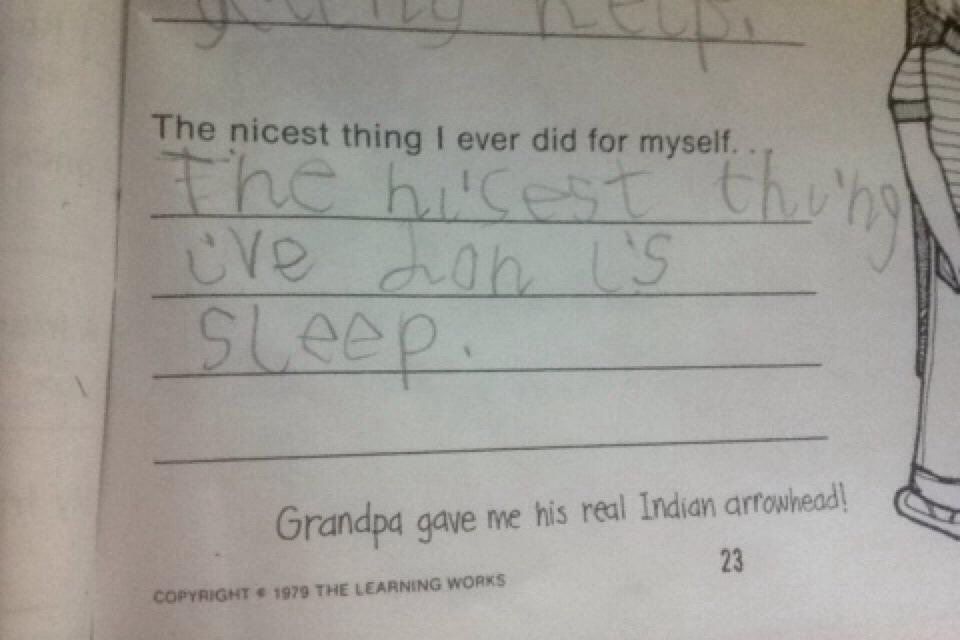 help.
The nicest thing I ever did for myself. . .
The nicest thing
i've don is
sleep.
Grandpa gave me his real Indian arrowhead!
23
COPYRIGHT © 1979 THE LEARNING WORKS